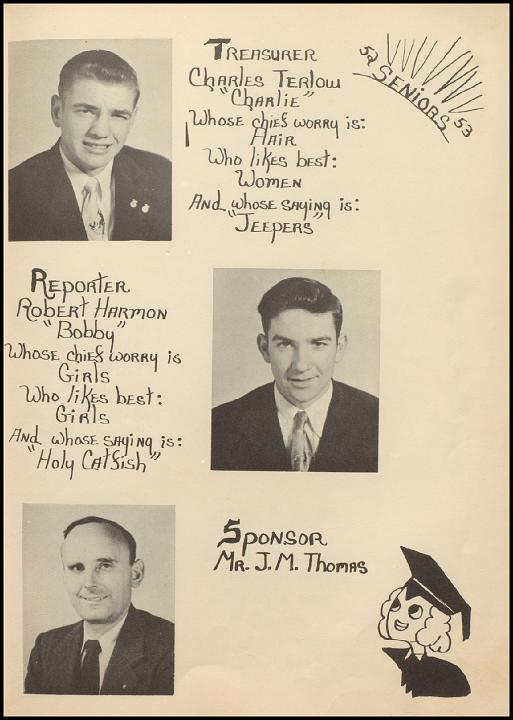 Treasurer
Charles Terlow
"Charlie"
Whose chief worry is:
Hair
Who likes best:
Women
And whose saying is:
"Jeepers"
52 Seniors 53
Reporter
Robert Harmon
"Bobby"
Whose chief worry is
Girls
Who likes best:
Girls
And whose saying is:
"Holy Catfish"
Sponsor
Mr. J.M. Thomas